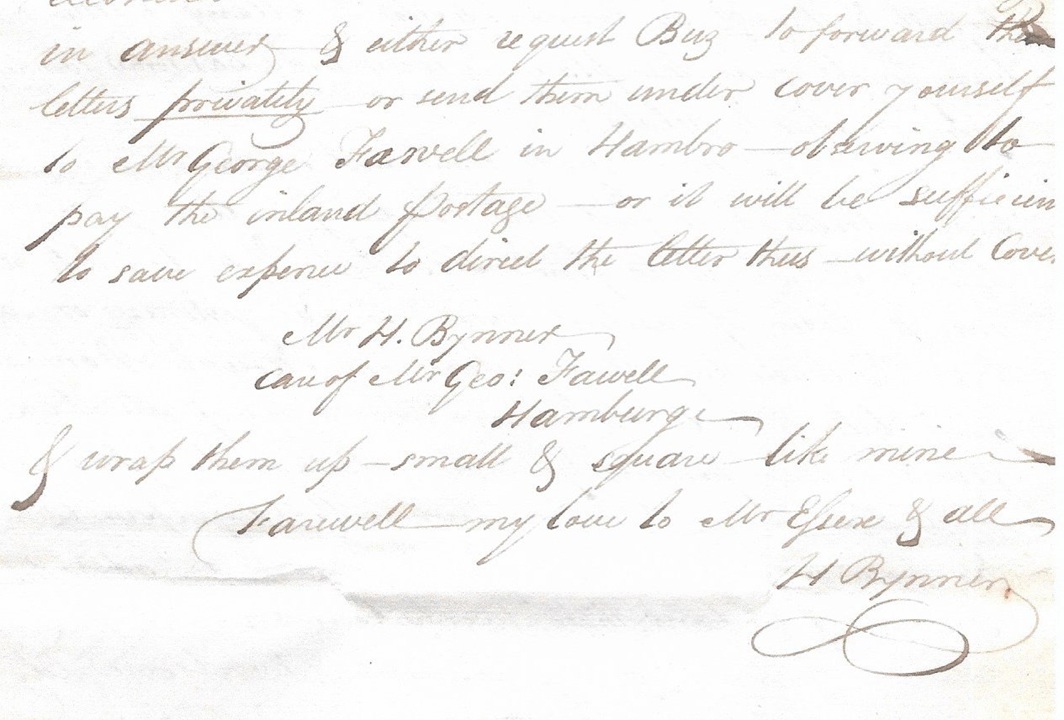 in answer & either request Buz to forward the
letters privately or send them under cover yourself
to Mr George Fawell in Hambro — observing to
pay the inland postage — or it will be sufficien
to save expence to direct the letter thus — without Cover
Mr H. Bynner
Care of Mr Geo: Fawell
Hamburg
& wrap them up — small & square like mine
Farewell — my love to Mr Essex & all
H Bynner